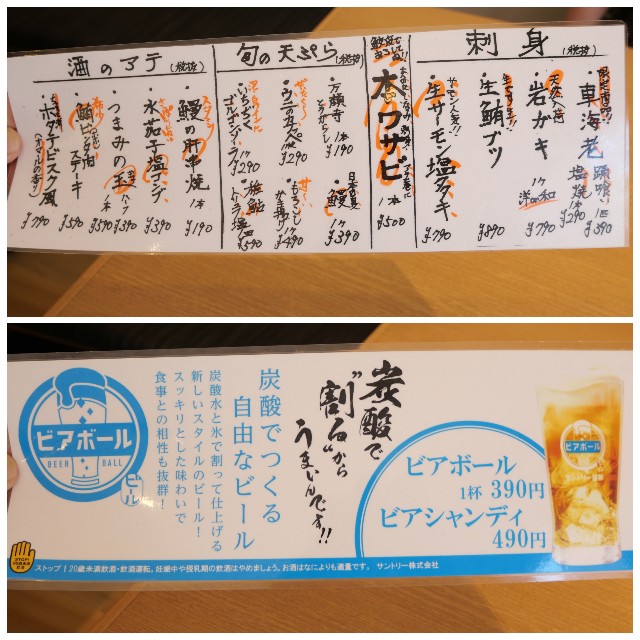 刺身(税抜)
車海老 踊喰い 1匹 ¥390
塩焼 1本 ¥290
天然
岩ガキ 1ヶ ¥790
洋or和
生鮪ブツ ¥890
サーモン人気!!
生サーモン塩タタキ ¥790
本ワサビ 1本 ¥500
旬の天ぷら(税抜)
万願寺とうがらし 1本 ¥190
日本の夏
鰻 1ヶ ¥390
ウニの大葉 ¥290
もろこし
かき揚げ 1ヶ ¥490
いちぢく
ゴルゴンゾーラ 1ヶ ¥290
稚鮎
¥590
酒のアテ(税抜)
鰻の肝串焼 1本 ¥190
水茄子塩ナシプ ¥390
つまみの玉 ハーフ ¥390
1本 ¥590
ステーキ ¥590
ホタテビスク風
(オマールの香り) ¥790
炭酸で
"割る"から
うまいんです!!
炭酸でつくる
自由なビール
炭酸水と氷で割って仕上げる
新しいスタイルのビール!
スッキリとした味わいで
食事との相性も抜群!
ビアボール
BEER BALL
ビール
ビアボール
1杯 390円
ビアシャンディ
490円
ビアボール
サントリー
ストップ!20歳未満飲酒・飲酒運転。妊娠中や授乳期の飲酒はやめましょう。お酒はなによりも適量です。 サントリー株式会社